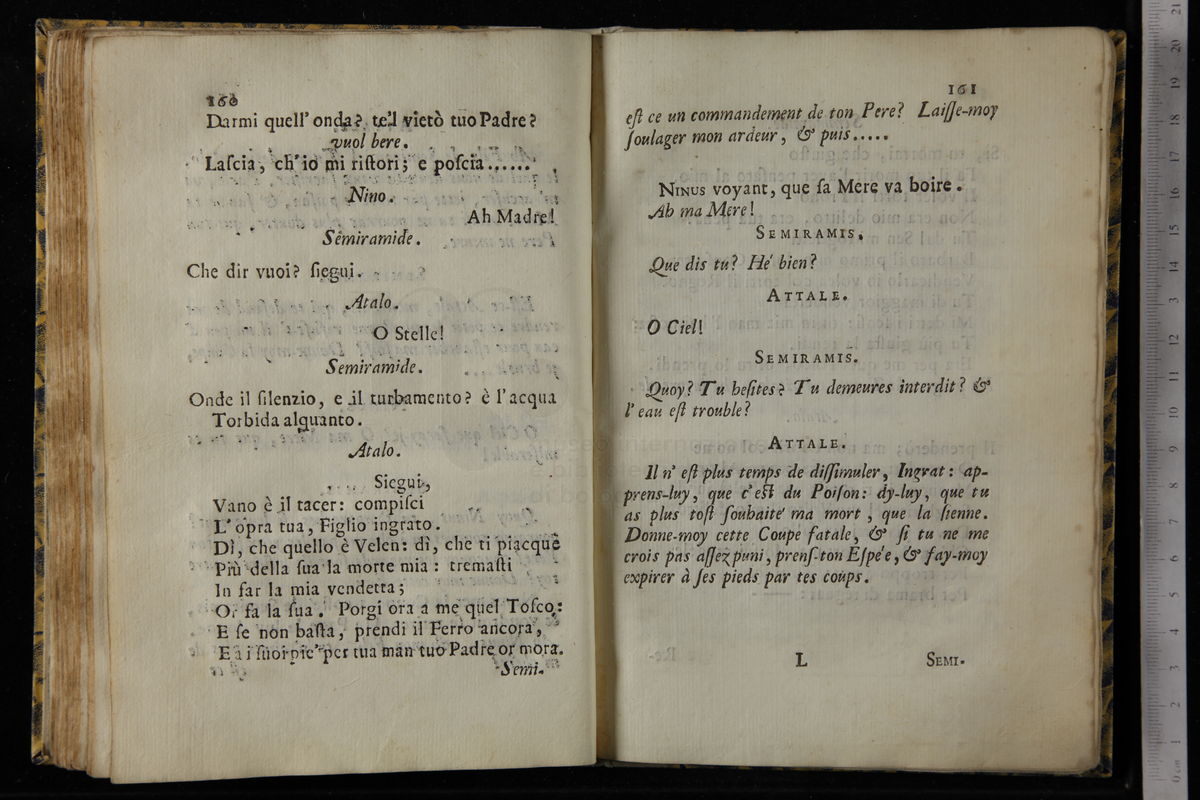 160
Darmi quell' onda? te'l vietò tuo Padre?
vuol bere.
Laſcia, ch'io mi riſtori; e poſcia......
Nino.
Ah Madre!
Semiramide.
Che dir vuoi? ſiegui.
Atalo.
O Stelle!
Semiramide.
Onde il ſilenzio, e il turbamento? è l'acqua
Torbida alquanto.
Atalo.
Siegui,
Vano è il tacer: compiſci
L'opra tua, Figlio ingrato.
Dì, che quello è Velen: dì, che ti piacque
Più della ſua la morte mia: tremaſti
In far la mia vendetta;
Or fa la ſua. Porgi ora a me quel Toſco:
E ſe non baſta, prendi il Ferro ancora,
E a i ſuoi pie' per tua man tuo Padre or mora.
Semi-
161
eſt ce un commandement de ton Pere? Laiſſe-moy
ſoulager mon ardeur, & puis.....
NINUS voyant, que ſa Mere va boire.
Ah ma Mere!
SEMIRAMIS.
Que dis tu? Hé bien?
ATTALE.
O Ciel!
SEMIRAMIS.
Quoy? Tu heſites? Tu demeures interdit? &
l'eau eſt trouble?
ATTALE.
Il n'eſt plus temps de diſſimuler, Ingrat: ap-
prens-luy, que c'eſt du Poiſon: dy-luy, que tu
as plus toſt ſouhaité ma mort, que la ſienne.
Donne-moy cette Coupe fatale, & ſi tu ne me
crois pas aſſez puni, prenſ-ton Eſpe'e, & fay-moy
expirer à ſes pieds par tes coups.
L
SEMI-
0 cm 1 2 3 4 5 6 7 8 9 10 11 12 13 14 15 16 17 18 19 20 21